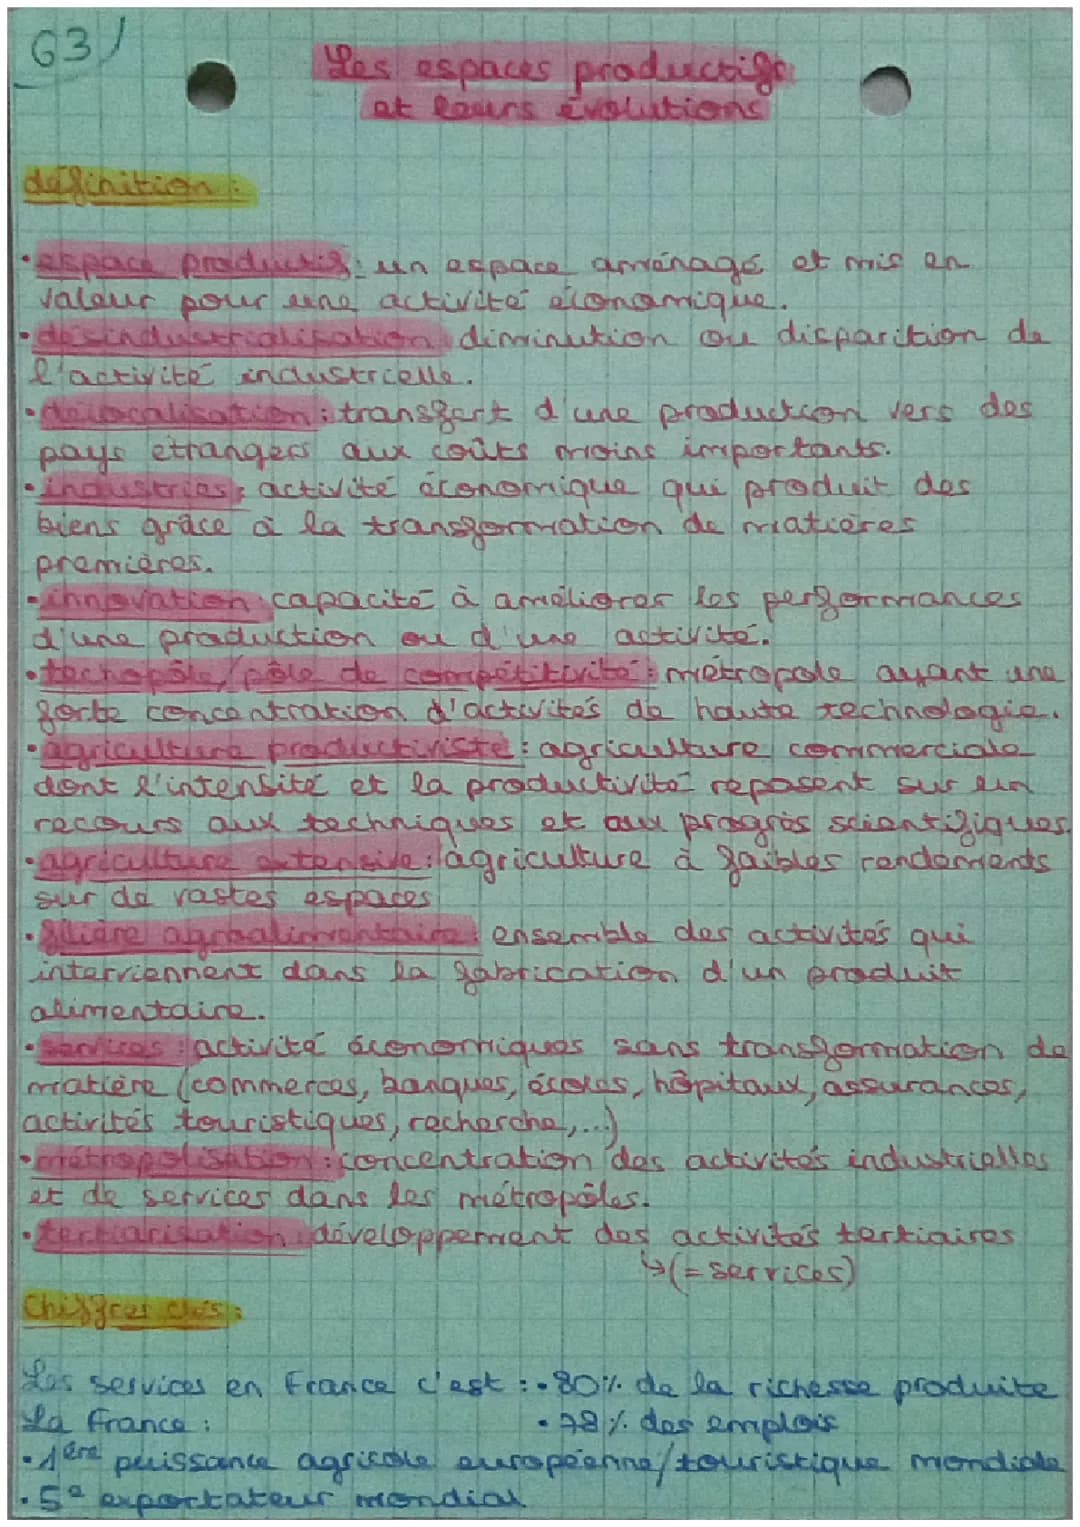 G3)
Les espaces productifs
et leurs évolutions
définition :
• espace productif : un espace aménagé et mis en
valeur pour une activité économique.
• désindustrialisation diminution ou disparition de
l'activité industrielle.
• délocalisation : transfert d'une production vers des
pays étrangers aux coûts moins importants.
• industries : activité économique qui produit des
biens grâce à la transformation de matières
premières.
• innovation capacité à améliorer les performances
d'une production ou d'une activité.
• techopôle/pôle de compétitivité : métropole ayant une
forte concentration d'activités de haute technologie.
• agriculture productiviste : agriculture commerciale
dont l'intensité et la productivité reposent sur un
recours aux techniques et aux progrès scientifiques.
• agriculture extensive : agriculture à faibles rendements
sur de vastes espaces
• filière agroalimentaire : ensemble des activités qui
interviennent dans la fabrication d'un produit
alimentaire.
• services : activité économiques sans transformation de
matière (commerces, banques, écoles, hôpitaux, assurances,
activités touristiques, recherche,...)
• métropolisation : concentration des activités industrielles
et de services dans les métropôles.
• tertiarisation développement des activités tertiaires
↳ (= services)
Chiffres clés :
Les services en France c'est : • 80% de la richesse produite
La France : • 78% des emplois
• 1ère puissance agricole européenne/touristique mondiale
• 5e exportateur mondial